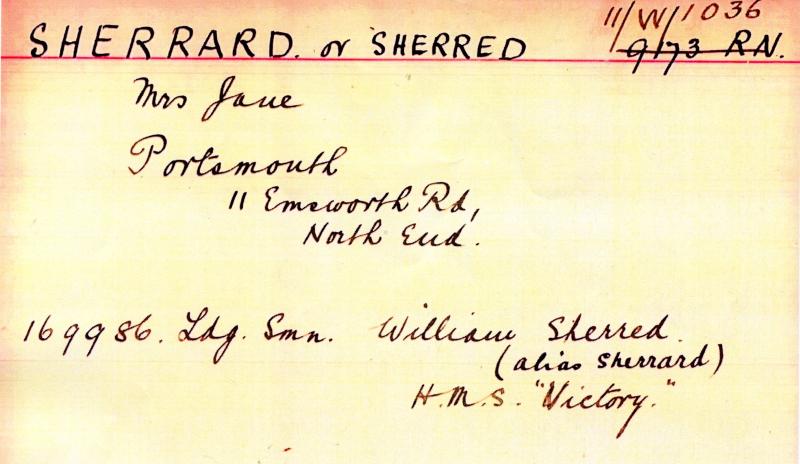 11/W/1036
SHERRARD. or SHERRED
9/73 RN.
Mrs Jane
Portsmouth
11 Emsworth Rd,
North End.
169986. Ldg. Smn. William Sherred.
(alias Sherrard)
H.M.S. "Victory."